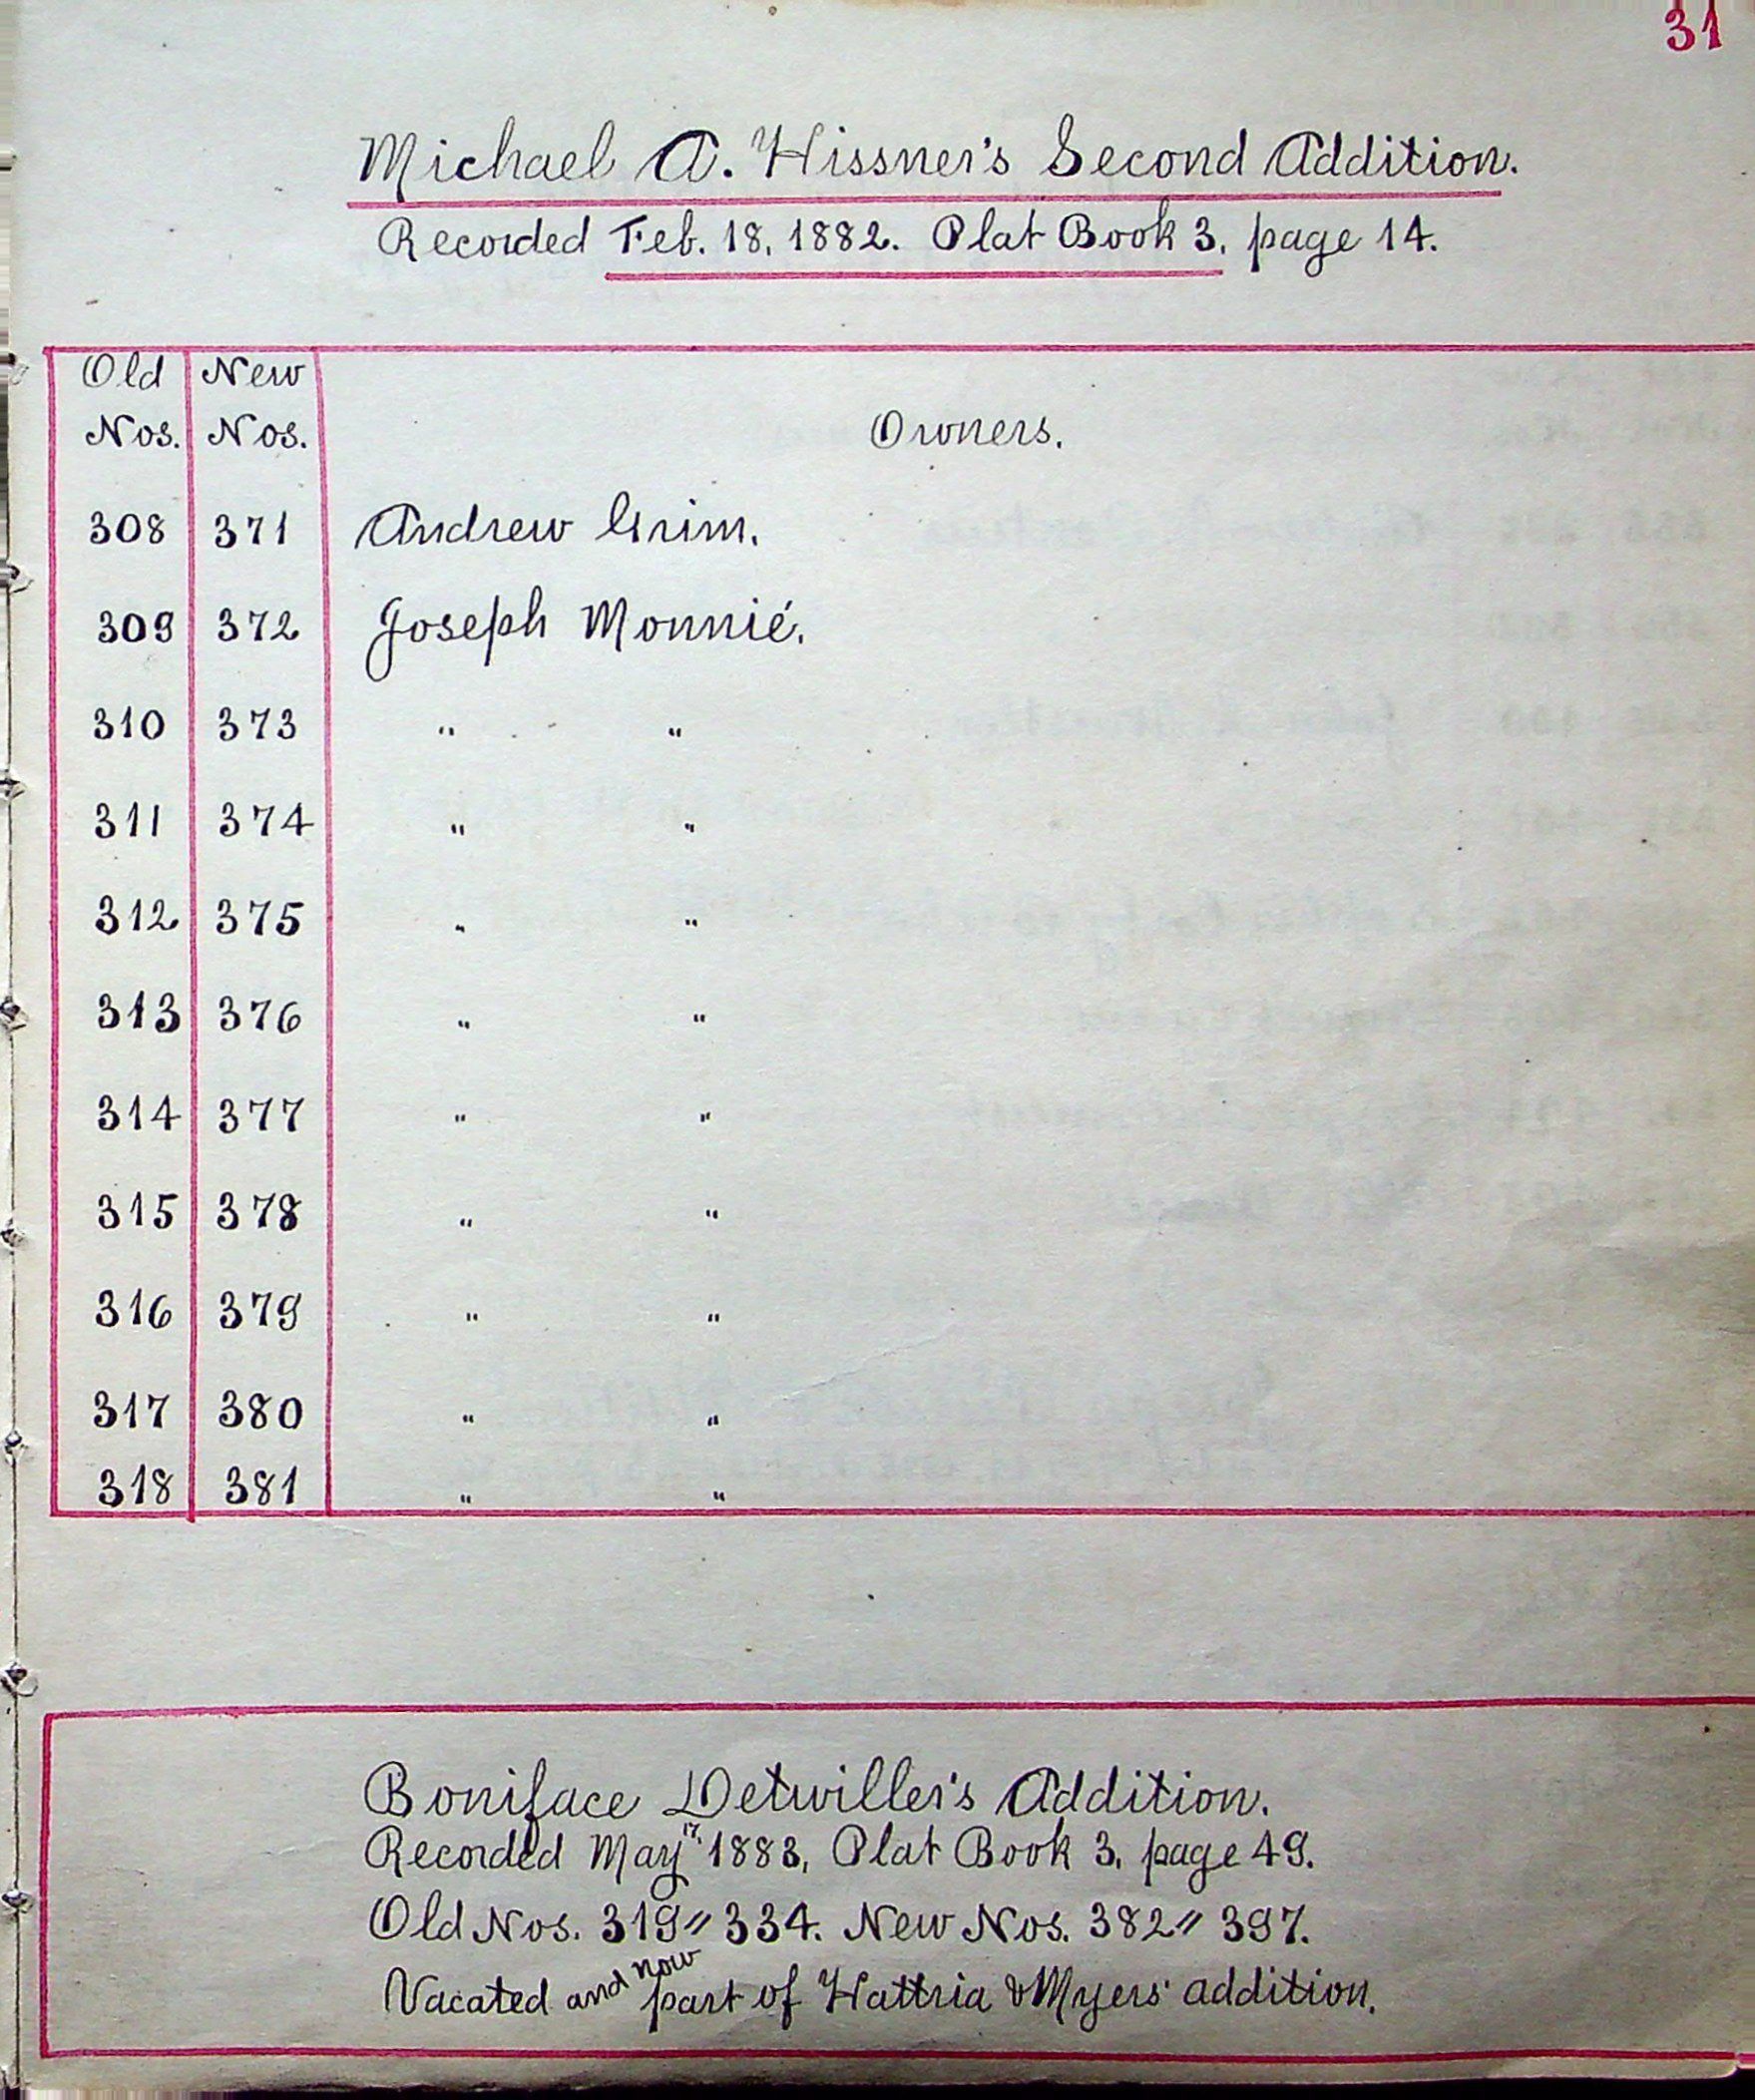 31
Michael A. Hissner's Second Addition.
Recorded Feb. 18, 1882. Plat Book 3, page 14.
Old New
Nos. Nos. Owners.
308 371 Andrew Grim.
309 372 Joseph Monnié.
310 373 " "
311 374 " "
312 375 " "
313 376 " "
314 377 " "
315 378 " "
316 379 " "
317 380 " "
318 381 " "
Boniface Detwiller's Addition.
Recorded May 17. 1883, Plat Book 3, page 49.
Old Nos. 319 " 334. New Nos. 382 " 397.
Vacated and now part of Hattria & Myers' addition.